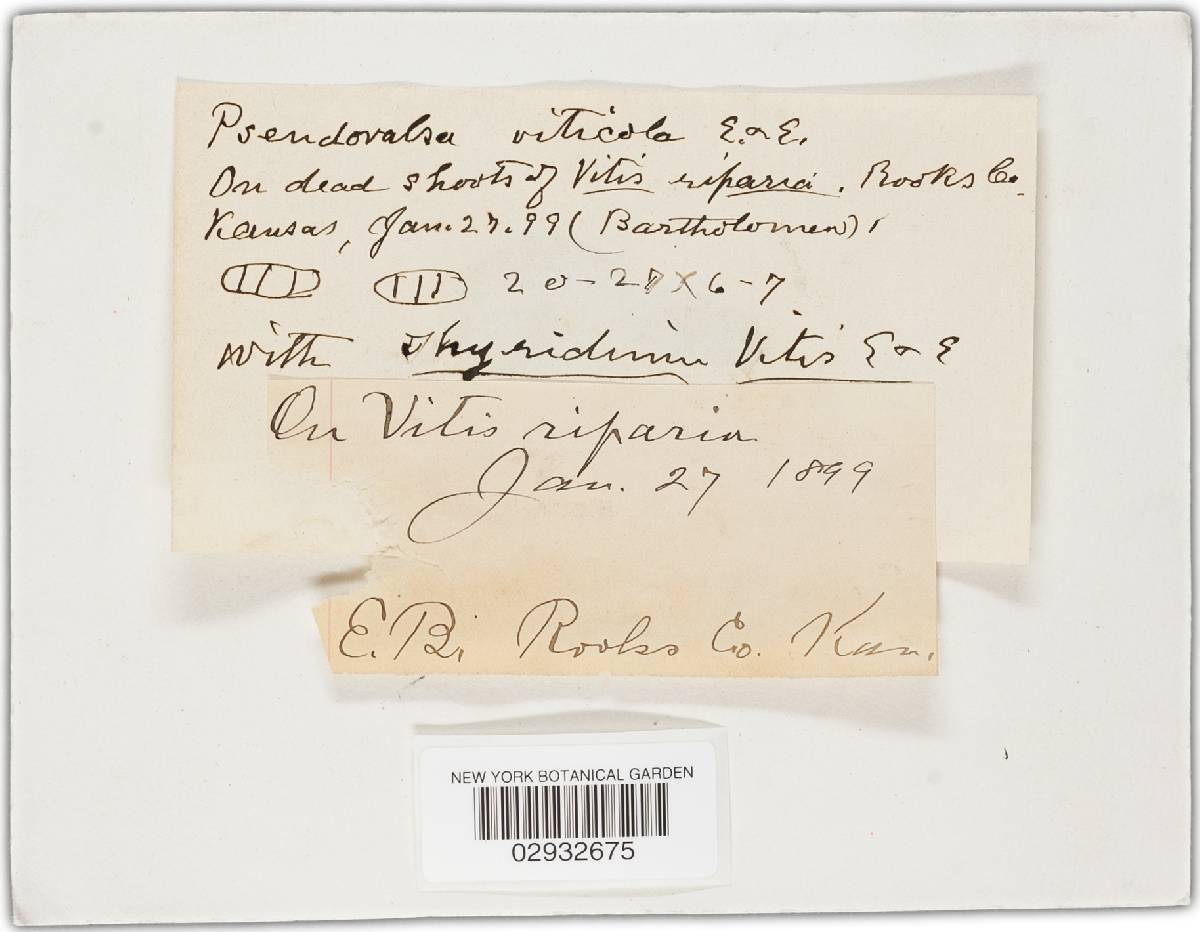 Pseudovalsa viticola E. & E.
On dead shoots of Vitis riparia. Rooks Co.
Kansas, Jan. 27. 99 (Bartholomew),
20-27 x 6-7
with Thyridium Vitis E & E
On Vitis riparia
Jan. 27 1899
E. B. Rooks Co. Kan.
NEW YORK BOTANICAL GARDEN
02932675